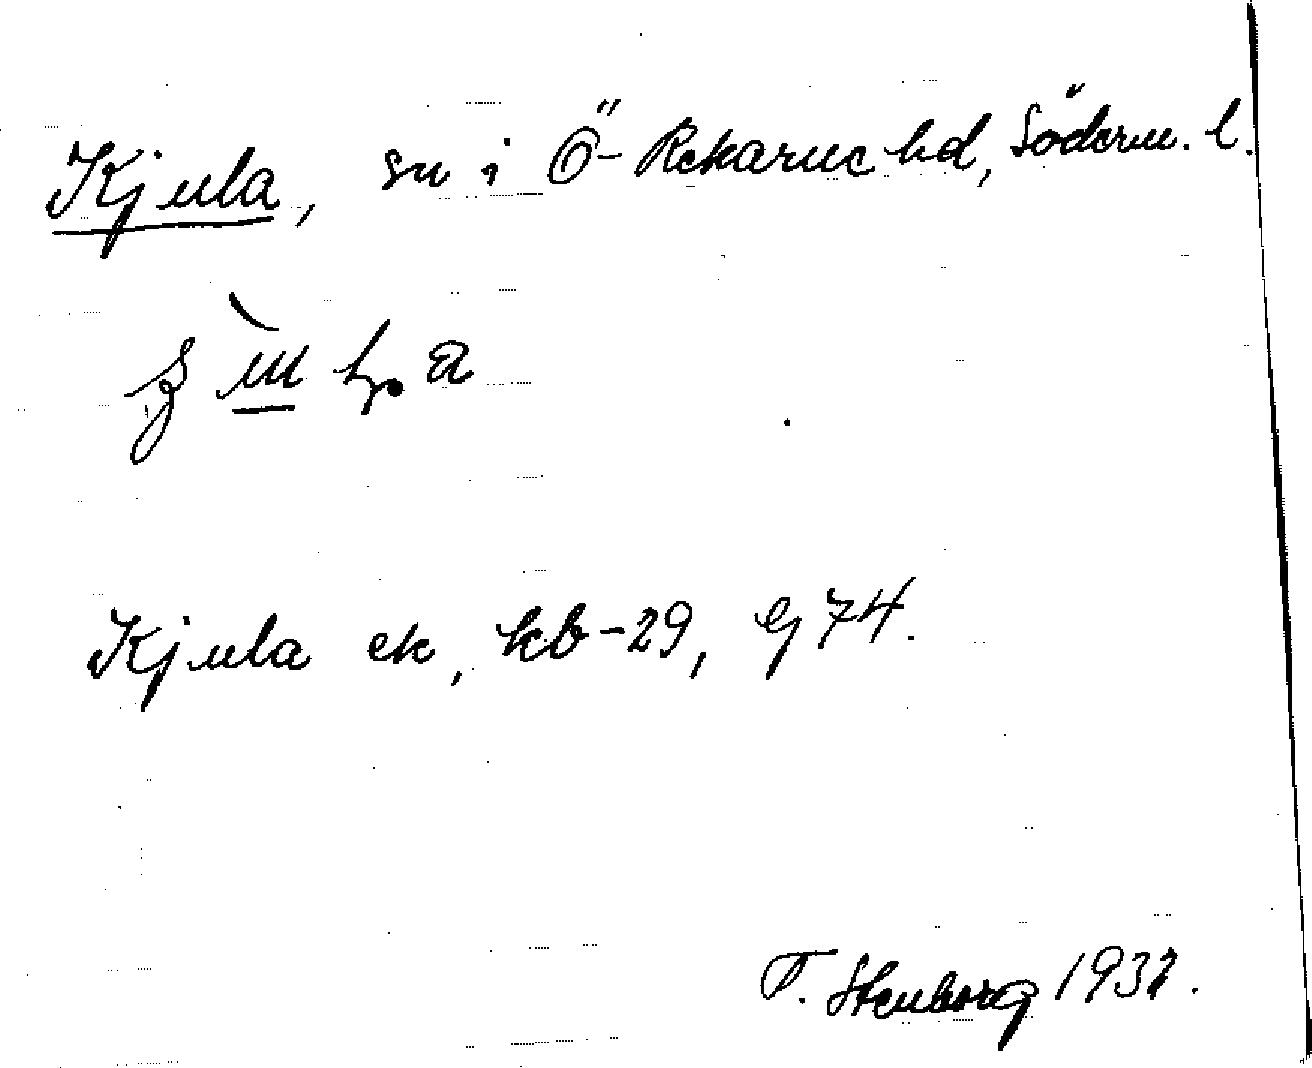 Kjula, sn i Ö-Rekarne hd, Söderm. l.
Kjula ek, kb-29, G 74.
F. Stenborg 1932.